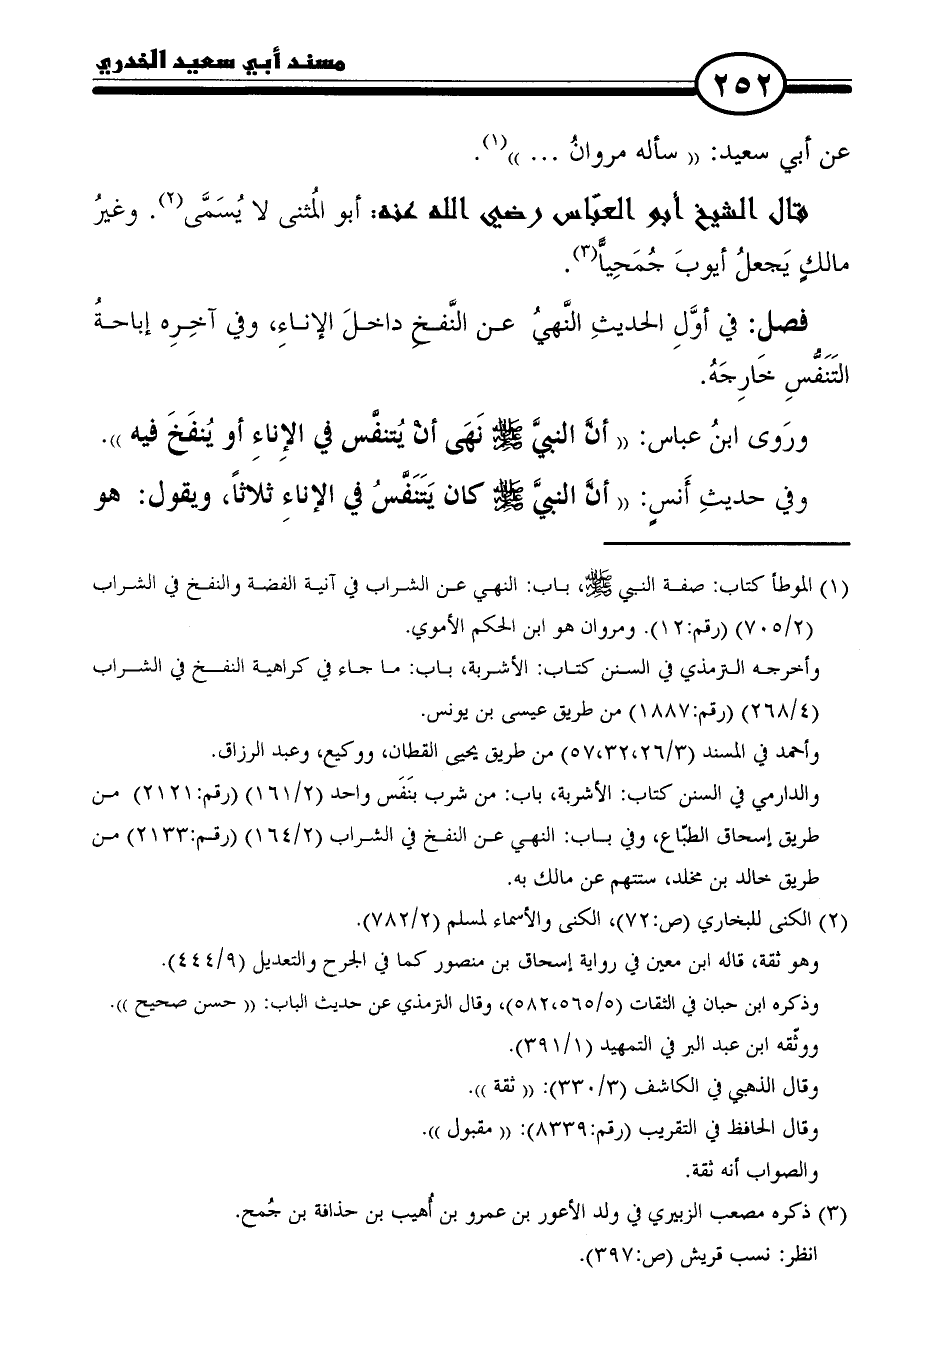 مسند أبي سعيد الخدري
٢٥٢
عن أبي سعيد: (( سأله مروانُ ... ))(١).
قال الشيخ أبو العبّاس رضي الله عنه: أبو المُثنى لا يُسَمَّى(٢). وغيرُ
مالكٍ يَجعلُ أيوبَ جُمَحِيًّا(٣).
فصل: في أوَّلِ الحديثِ النَّهيُ عن النَّفخِ داخلَ الإناءِ، وفي آخِرِه إباحةُ
التَنَفُّسِ خَارِجَهُ.
ورَوى ابنُ عباس: (( أنَّ النبيَّ ﷺ نَهَى أنْ يُتنفَّس في الإناءِ أو يُنفَخَ فيه )).
وفي حديثِ أَنسٍ: (( أنَّ النبيَّ ﷺ كان يَتَنَفَّسُ في الإناءِ ثلاثاً، ويقول: هو
(١) الموطأ كتاب: صفة النبي ﷺ، باب: النهي عن الشراب في آنية الفضة والنفخ في الشراب
(٧٠٥/٢) (رقم:١٢). ومروان هو ابن الحكم الأموي.
وأخرجه الترمذي في السنن كتاب: الأشربة، باب: ما جاء في كراهية النفخ في الشراب
(٢٦٨/٤) (رقم:١٨٨٧) من طريق عيسى بن يونس.
وأحمد في المسند (٥٧،٣٢،٢٦/٣) من طريق يحيى القطان، ووكيع، وعبد الرزاق.
والدارمي في السنن كتاب: الأشربة، باب: من شرب بنَفَس واحد (١٦١/٢) (رقم:٢١٢١) من
طريق إسحاق الطبّاع، وفي باب: النهي عن النفخ في الشراب (١٦٤/٢) (رقم:٢١٣٣) من
طريق خالد بن مخلد، ستتهم عن مالك به.
(٢) الكنى للبخاري (ص:٧٢)، الكنى والأسماء لمسلم (٧٨٢/٢).
وهو ثقة، قاله ابن معين في رواية إسحاق بن منصور كما في الجرح والتعديل (٤٤٤/٩).
وذكره ابن حبان في الثقات (٥٨٢،٥٦٥/٥)، وقال الترمذي عن حديث الباب: (( حسن صحيح )).
ووثّقه ابن عبد البر في التمهيد (٣٩١/١).
وقال الذهبي في الكاشف (٣٣٠/٣): (( ثقة )).
وقال الحافظ في التقريب (رقم:٨٣٣٩): (( مقبول )).
والصواب أنه ثقة.
(٣) ذكره مصعب الزبيري في ولد الأعور بن عمرو بن أُهيب بن حذافة بن جُمح.
انظر: نسب قريش (ص:٣٩٧).